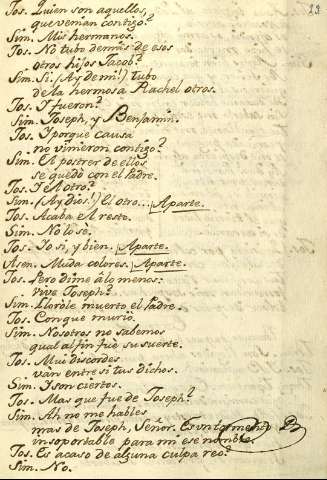 23
Jos. Quien son aquellos,
que venian contigo?
Sim. Mis hermanos.
Jos. No tubo demàs de esos
otros hijos Jacob?
Sim. Si. (Ay de mi!) tubo
de la hermosa Rachel otros.
Jos. I fueron?
Sim. Joseph, y Benjamin.
Jos. I porque causa
no vinieron contigo?
Sim. El postrer de ellos
se quedò con el Padre.
Jos. I el otro?
Sim. (Ay dios!) El otro... Aparte.
Jos. Acaba el resto.
Sim. No lo sè.
Jos. Io si, y bien. Aparte.
Asen. Muda colores. Aparte.
Jos. Pero dime á lo menos:
vive Joseph?
Sim. Lloròle muerto el Padre.
Jos. Con que muriò.
Sim. Nosotros no sabemos
qual al fin fuè su suerte.
Jos. Mui discordes
vàn entre si tus dichos.
Sim. I son ciertos.
Jos. Mas que fue de Joseph?
Sim. Ah no me hables
mas de Joseph, Señor. Es un tormento
insoportable para mi ese nombre.
Jos. Es acaso de alguna culpa reo?
Sim. No.